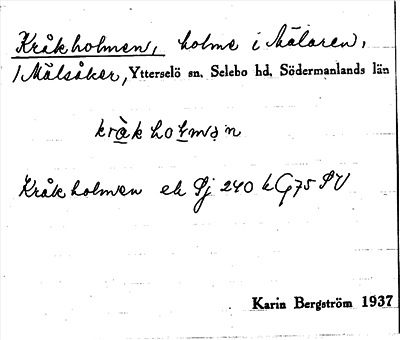 Kråkholmen, holme i Mälaren,
/Mälsåker, Ytterselö sn. Selebo hd. Södermanlands län
kràkholmən
Kråkholmen ek Sj 240 k G75 SV
Karin Bergström 1937